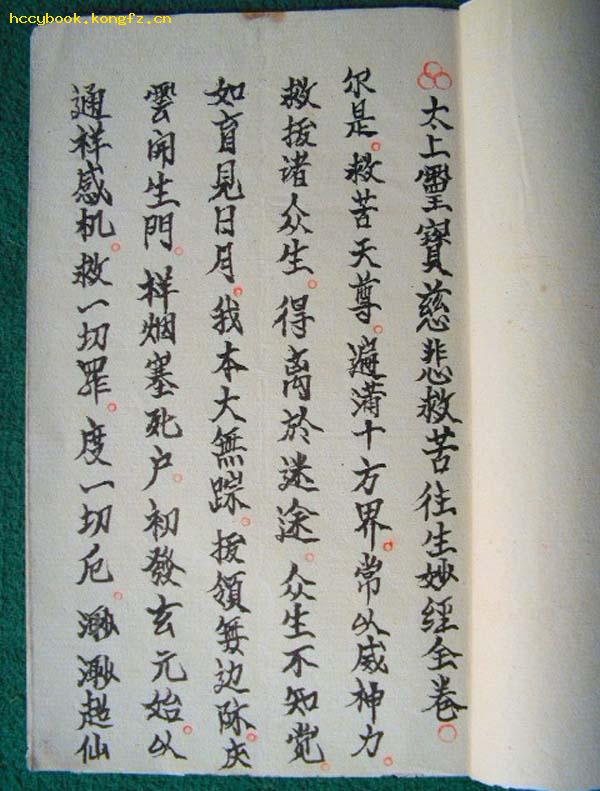 hccybook.kongfz.cn
太上靈寳慈悲救苦往生妙經全卷
尔是。救苦天尊。遍满十方界。常以威神力。
救拔诸众生。得离於迷途。众生不知觉。
如盲見日月。我本大無踪。拔領無边际。庆
雲開生門。祥烟塞死户。初發玄元始。以
通祥感机。救一切罪。度一切厄。渺渺超仙